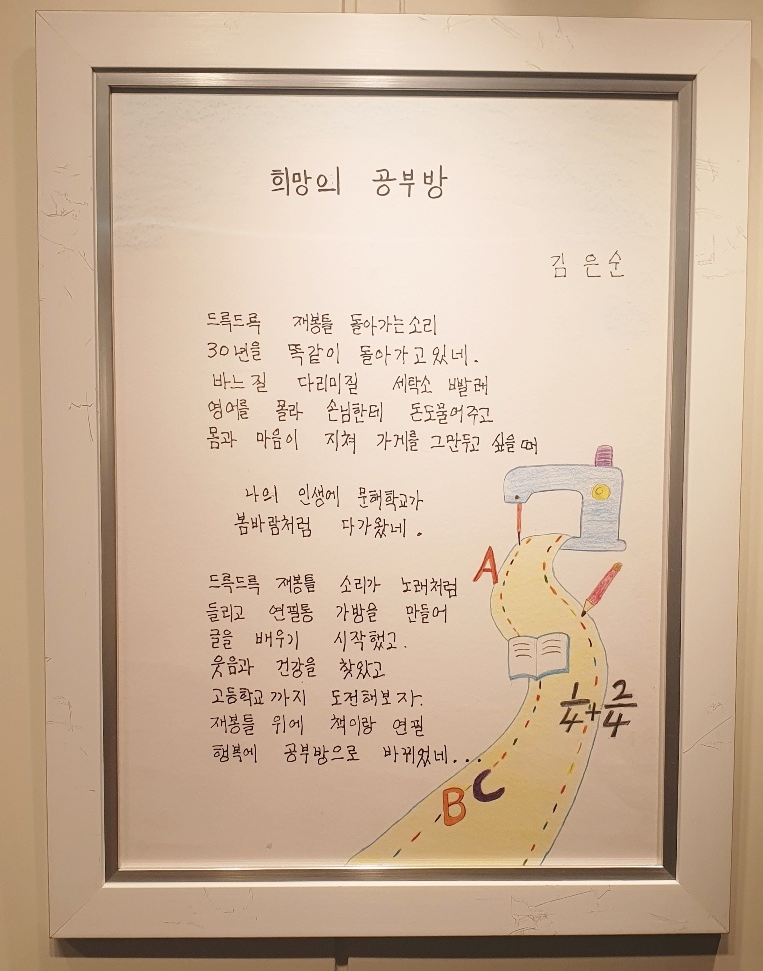 희망의 공부방
김은순
드륵드륵 재봉틀 돌아가는소리
30년을 똑같이 돌아가고있네.
바느질 다리미질 세탁소 빨래
영어를 몰라 손님한테 돈도물어주고
몸과 마음이 지쳐 가게를 그만두고 싶을때
나의 인생에 문해학교가
봄바람처럼 다가왔네.
드륵드륵 재봉틀 소리가 노래처럼
들리고 연필통 가방을 만들어
글을 배우기 시작했고.
웃음과 건강을 찾았고
고등학교까지 도전해보자.
재봉틀 위에 책이랑 연필
행복에 공부방으로 바뀌었네...
A
1/4+2/4
B C